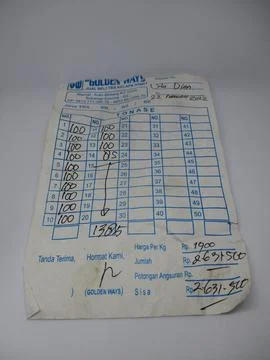 GW "GOLDEN WAYS"
JUAL BELI TBS KELAPA SAWIT
TONASE
1 100 11 100 21 31 41
2 100 12 100 22 32 42
3 100 13 100 23 33 43
4 100 14 85 24 34 44
5 100 15 25 35 45
6 100 16 26 36 46
7 100 17 27 37 47
8 100 18 28 38 48
9 100 19 29 39 49
10 100 20 30 40 50
1385
Harga Per Kg Rp. 1900
Tanda Terima, Hormat Kami, Jumlah Rp. 2.631.500
Potongan Angsuran Rp.
) (GOLDEN WAYS) Sisa Rp. 2.631.500